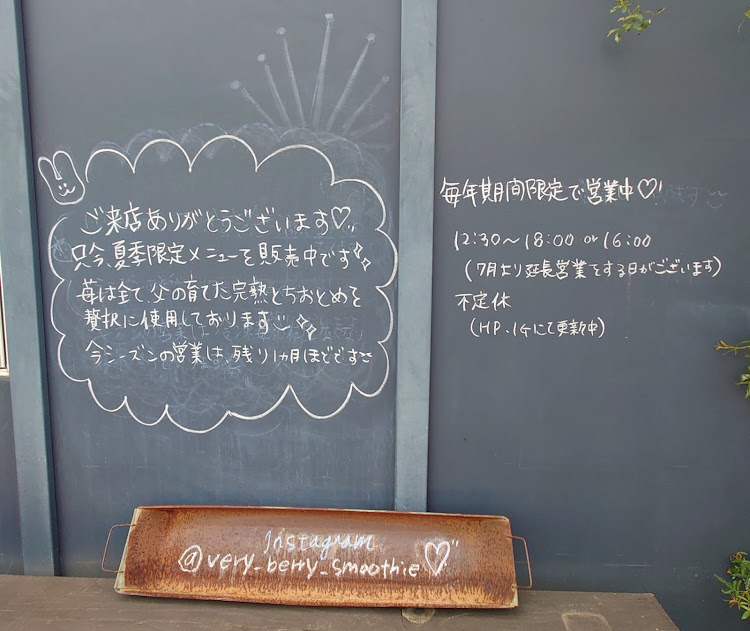 ご来店ありがとうございます♡
只今、夏季限定メニューを販売中です
苺は全て、父の育てた完熟とちおとめを
贅沢に使用しております
今シーズンの営業は、残り1ヵ月ほどです
毎年期間限定で営業中♡
12:30〜18:00 or 16:00
(7月より延長営業をする日がございます)
不定休
(HP、IGにて更新中)
Instagram
@very_berry_smoothie♡